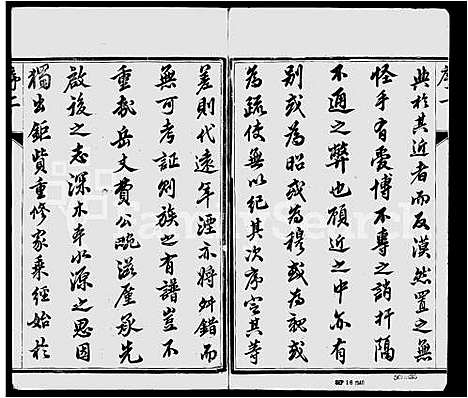 序一
典於其近者而反漠然置之無
怪乎有愛博不專之誚扞隔
不通之弊也顧近之中亦有
別或為昭或為穆或為親或
為疏使無以紀其次序定其等
差則代遠年湮亦將舛錯而
無可考証則族之有譜豈不
重哉岳文費公晚滋厪承先
啟後之志深木本水源之思因
獨出鉅貲重修家乘經始於
序二
FamilySearch
SEP 18 1940